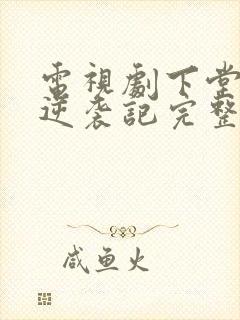 電視劇下堂
逆袭記完整
咸鱼火